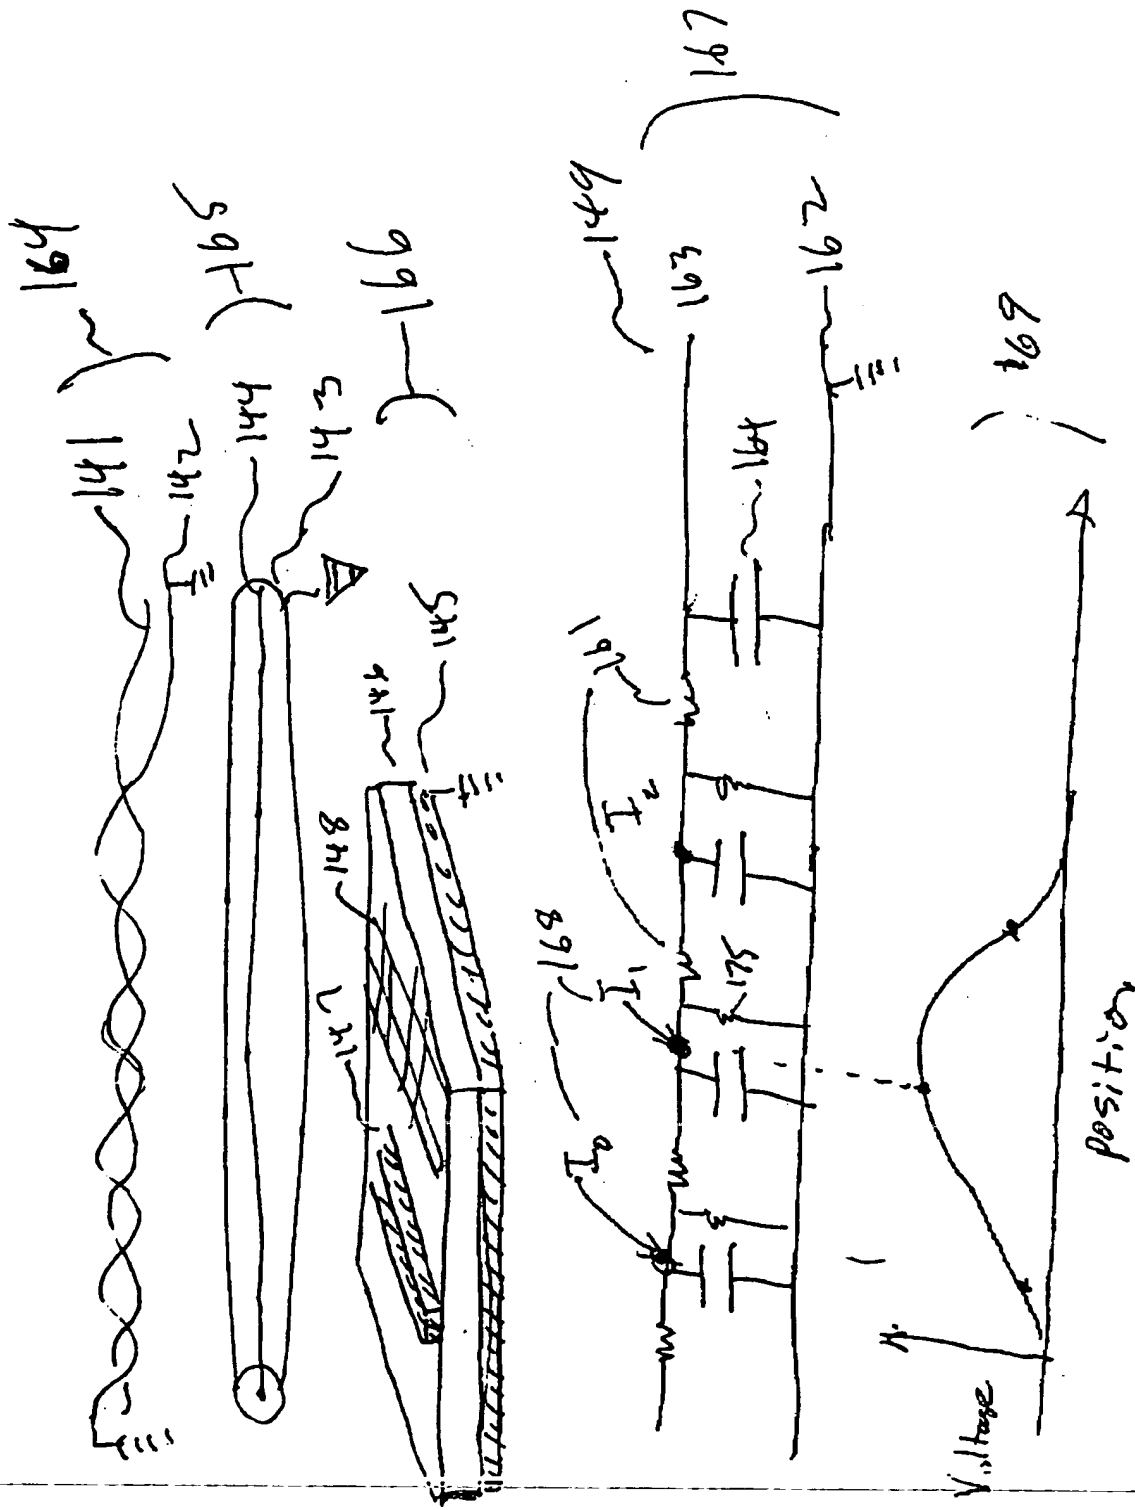 164
141
142
165
144
143
166
145
146
148
147
167
149
163
162
164
161
I2
168
I1
175
I0
169
Voltage
position